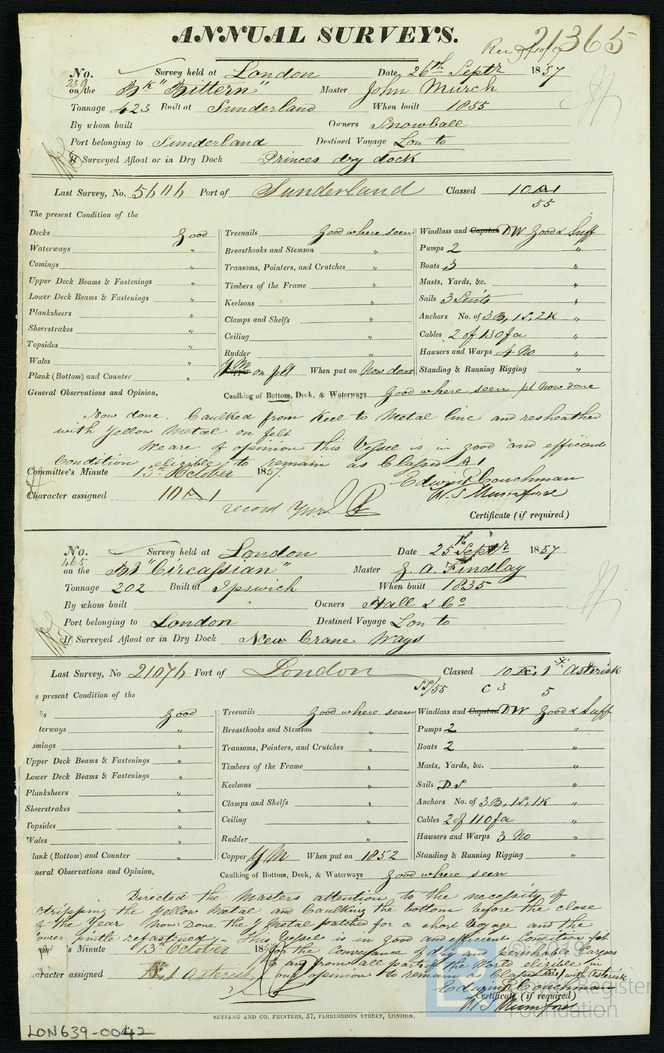 ANNUAL SURVEYS.
21365
No. 239 Survey held at London Date, 26th Septr 1857
on the Bk "Bittern" Master John Murch
Tonnage 423 Built at Sunderland When built 1855
By whom built Owners Snowball
Port belonging to Sunderland Destined Voyage Lon to
If Surveyed Afloat or in Dry Dock Princes dry dock
Last Survey, No. 5606 Port of Sunderland Classed 10 A 1
55
The present Condition of the
Decks good Treenails Good where seen Windlass and Capstan DW Good & Suff
Waterways " Breasthooks and Stemson " Pumps 2 "
Comings " Transoms, Pointers, and Crutches " Boats 3 "
Upper Deck Beams & Fastenings " Timbers of the Frame " Masts, Yards, &c. "
Lower Deck Beams & Fastenings " Keelsons " Sails 3 Suits "
Planksheers " Clamps and Shelfs " Anchors No. of 3B, 1S, 2K "
Sheerstrakes " Ceiling " Cables 2 of 130 fa "
Topsides " Rudder " Hawsers and Warps 4 No "
Wales " Copper YM on felt When put on Now done Standing & Running Rigging "
Plank (Bottom) and Counter "
General Observations and Opinion, Caulking of Bottom, Deck, & Waterways Good where seen pt Now done
Now done. Caulked from Keel to Metal line and resheathed
with Yellow Metal on felt
We are of opinion this Vessel is in good and efficient
Condition eligible to remain as Classed A 1
Committee's Minute 13th October 1857 Edwin Couchman
Character assigned 10 A 1 W. S. Mumford
record YM Certificate (if required)
No. 465 Survey held at London Date 25th Septr 1857
on the Bk "Circassian" Master J. A. Findlay
Tonnage 202 Built at Ipswich When built 1835
By whom built Owners Hall & Co
Port belonging to London Destined Voyage Lon to
If Surveyed Afloat or in Dry Dock New Crane Ways
Last Survey, No 21076 Port of London Classed 10 Æ 1 * Asterisk
SS/55 C 3 5
e present Condition of the
ks good Treenails Good where seen Windlass and Capstan DW Good & Suff
terways " Breasthooks and Stemson " Pumps 2 "
omings " Transoms, Pointers, and Crutches " Boats 2 "
Upper Deck Beams & Fastenings " Timbers of the Frame " Masts, Yards, &c. "
Lower Deck Beams & Fastenings " Keelsons " Sails DS "
Planksheers " Clamps and Shelfs " Anchors No. of 3B, 1S, 1K "
Sheerstrakes " Ceiling " Cables 2 of 110 fa "
Topsides " Rudder " Hawsers and Warps 3 No "
Wales " Copper YM When put on 1852 Standing & Running Rigging "
lank (Bottom) and Counter "
neral Observations and Opinion, Caulking of Bottom, Deck, & Waterways Good where seen
Directed the Masters attention to the necessity of
stripping the Yellow Metal and Caulking the bottom before the close
of the Year Now Done the Y Metal patched for a short Voyage and the
lower pintle refastened This Vessel is in good and efficient Condition fit
's Minute 13th October 1857 for the Conveyance of dry and perishable Cargoes
to and from all parts of the World eligible in
aracter assigned Æ 1 Asterisk our opinion to remain as Classed with Asterisk
Edwin Couchman
Certificate (if required)
W S Mumford
SEYFANG AND CO. PRINTERS, 57, FARRINGDON STREET, LONDON.
LON639-0042
© 2019
Register
Foundation